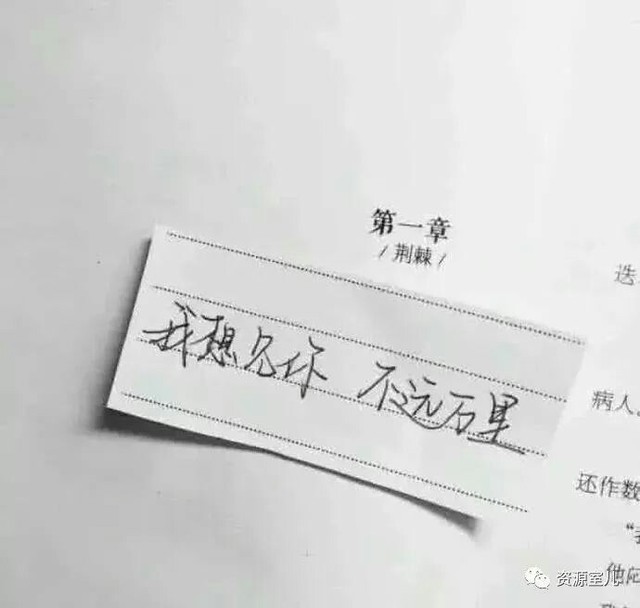 第一章
/ 荆棘 /
迭
我想见你 不远万里
病人
还作数
“我
他问
资源室儿